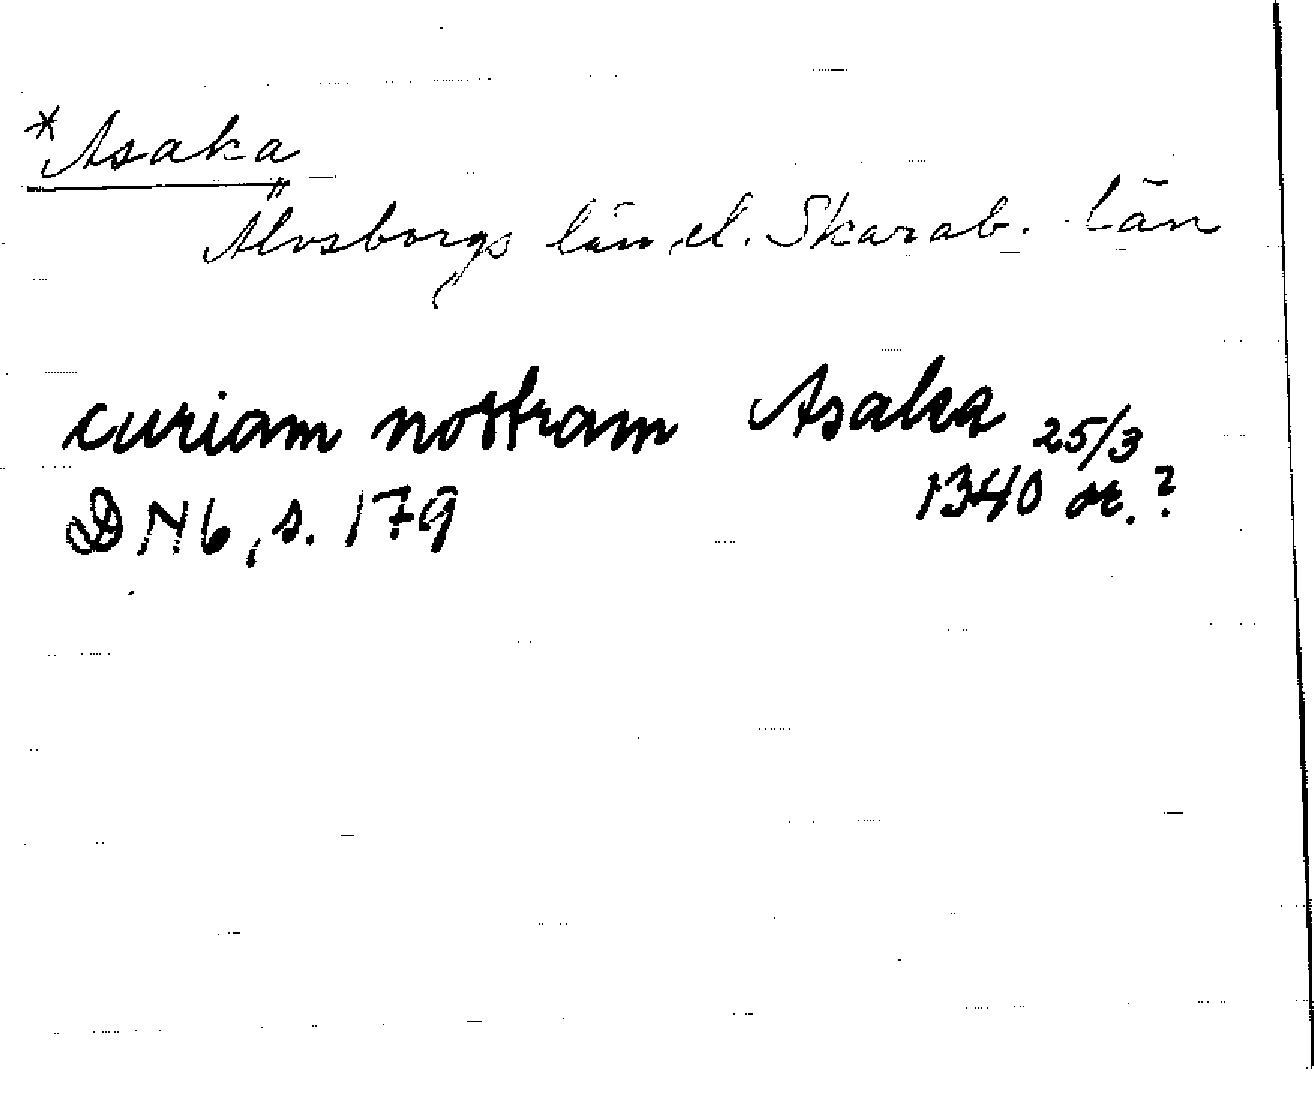 *Asaka
Älvsborgs län el. Skarab. län
curiam nostram Asaka 25/3
DN 6, s. 179 1340 or.?